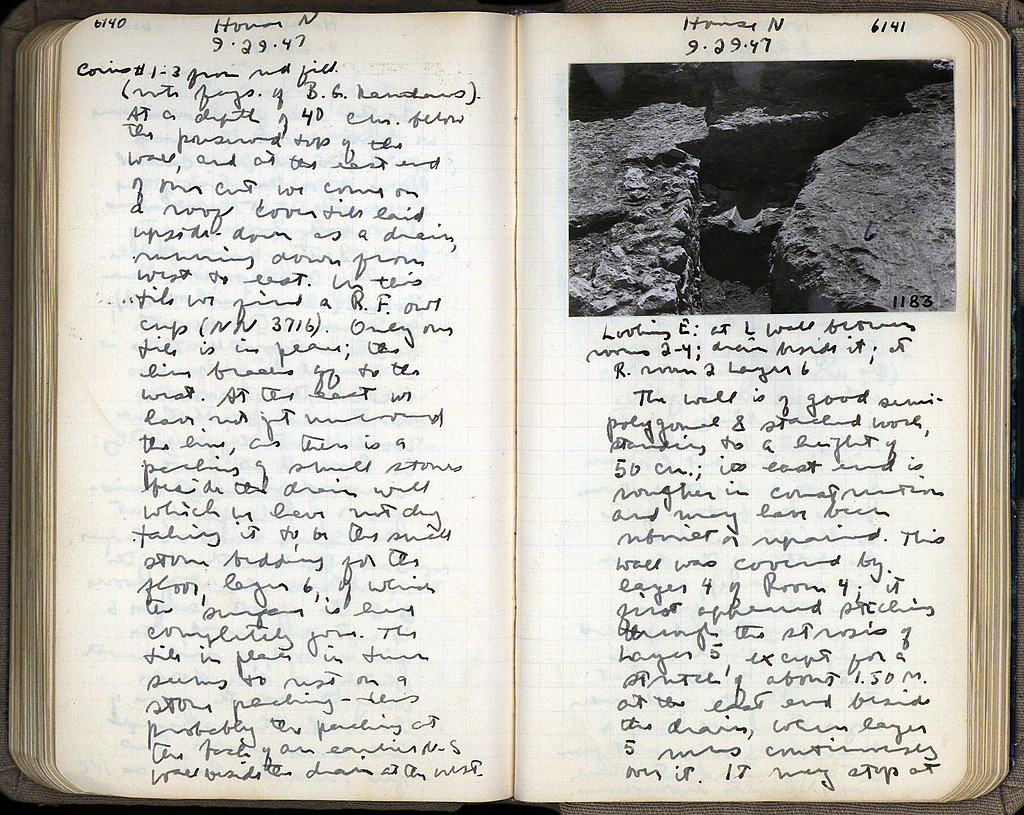 6140
House N
9.29.47
Coins #1-3 from red fill.
(with frags. of B.G. kantharos).
At a depth of 40 cm. below
the preserved top of the
wall, and at the east end
of our cut we come on
a roof cover tile laid
upside-down as a drain,
running down from
west to east. In this
tile we find a R.F. owl
cup (NN 3716). Only one
tile is in place; the
line breaks off to the
west. At the east we
have not yet uncovered
the line, as there is a
packing of small stones
beside the drain wall
which we have not dug
taking it to be the small
stone bedding for the
floor, layer 6, of which
the surface is here
completely gone. The
tile in place in turn
seems to rest on a
stone packing - this
probably the packing at
the face of an earlier N-S
wall beside the drain at the west.
House N
6141
9.29.47
6
1183
Looking E: at L wall between
rooms 2-4; drain beside it; at
R. room 2 Layer 6
The wall is of good semi-
polygonal & stacked work,
standing to a height of
50 cm.; its east end is
rougher in construction
and may have been
rebuilt or repaired. This
wall was covered by
layer 4 of Room 4; it
first appeared sticking
through the strosis of
Layer 5, except for a
stretch of about 1.50 M.
at the east end beside
the drain, where layer
5 runs continuously
over it. It may stop at